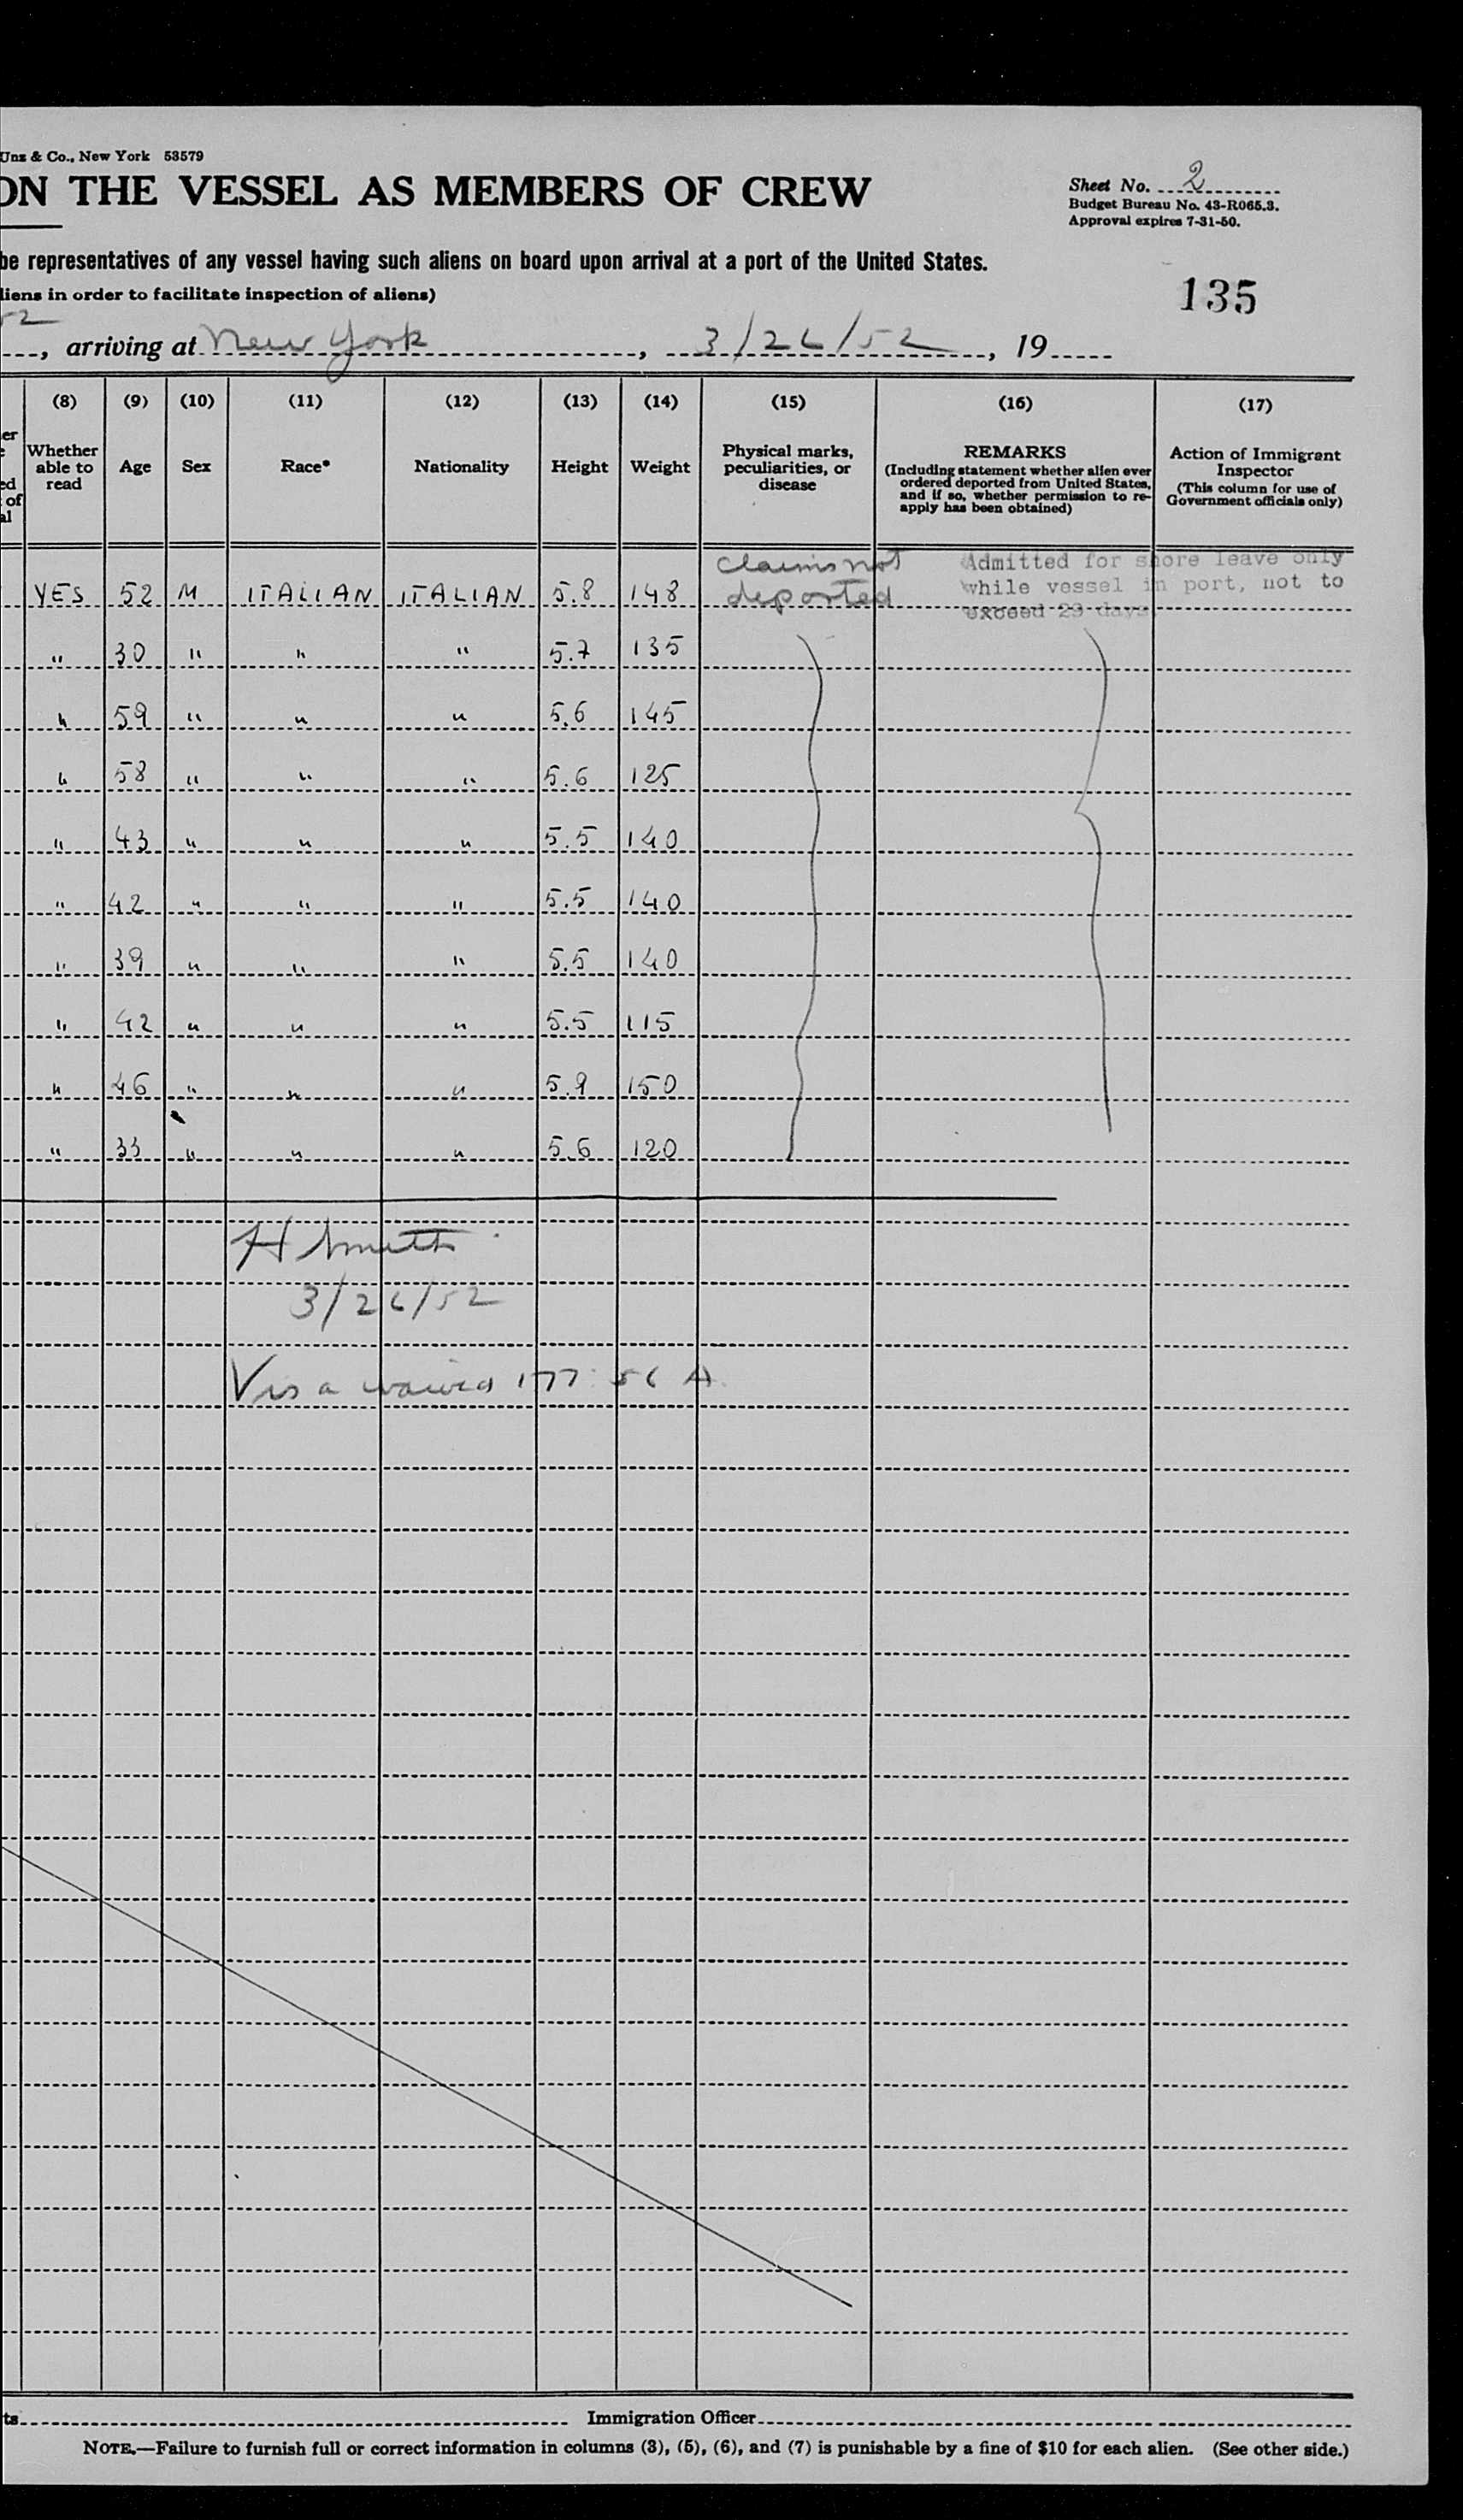 Unz & Co., New York 53579
ON THE VESSEL AS MEMBERS OF CREW
Sheet No. 2
Budget Bureau No. 43-R065.3.
Approval expires 7-31-50.
be representatives of any vessel having such aliens on board upon arrival at a port of the United States.
liens in order to facilitate inspection of aliens)
135
52
, arriving at New York, 3/26/52, 19
(8) (9) (10) (11) (12) (13) (14) (15) (16) (17)
er
ed
of
al
Whether able to read
Age
Sex
Race*
Nationality
Height
Weight
Physical marks, peculiarities, or disease
REMARKS
(Including statement whether alien ever ordered deported from United States, and if so, whether permission to re-apply has been obtained)
Action of Immigrant Inspector
(This column for use of Government officials only)
claims not deported
Admitted for shore leave only
while vessel in port, not to
exceed 29 days
YES 52 M ITALIAN ITALIAN 5.8 148
" 30 " " " 5.7 135
" 59 " " " 5.6 145
" 58 " " " 5.6 125
" 43 " " " 5.5 140
" 42 " " " 5.5 140
" 39 " " " 5.5 140
" 42 " " " 5.5 115
" 46 " " " 5.9 150
" 33 " " " 5.6 120
H Smith
3/26/52
Visa waived 177.56 A
ts
Immigration Officer
NOTE.—Failure to furnish full or correct information in columns (3), (5), (6), and (7) is punishable by a fine of $10 for each alien. (See other side.)